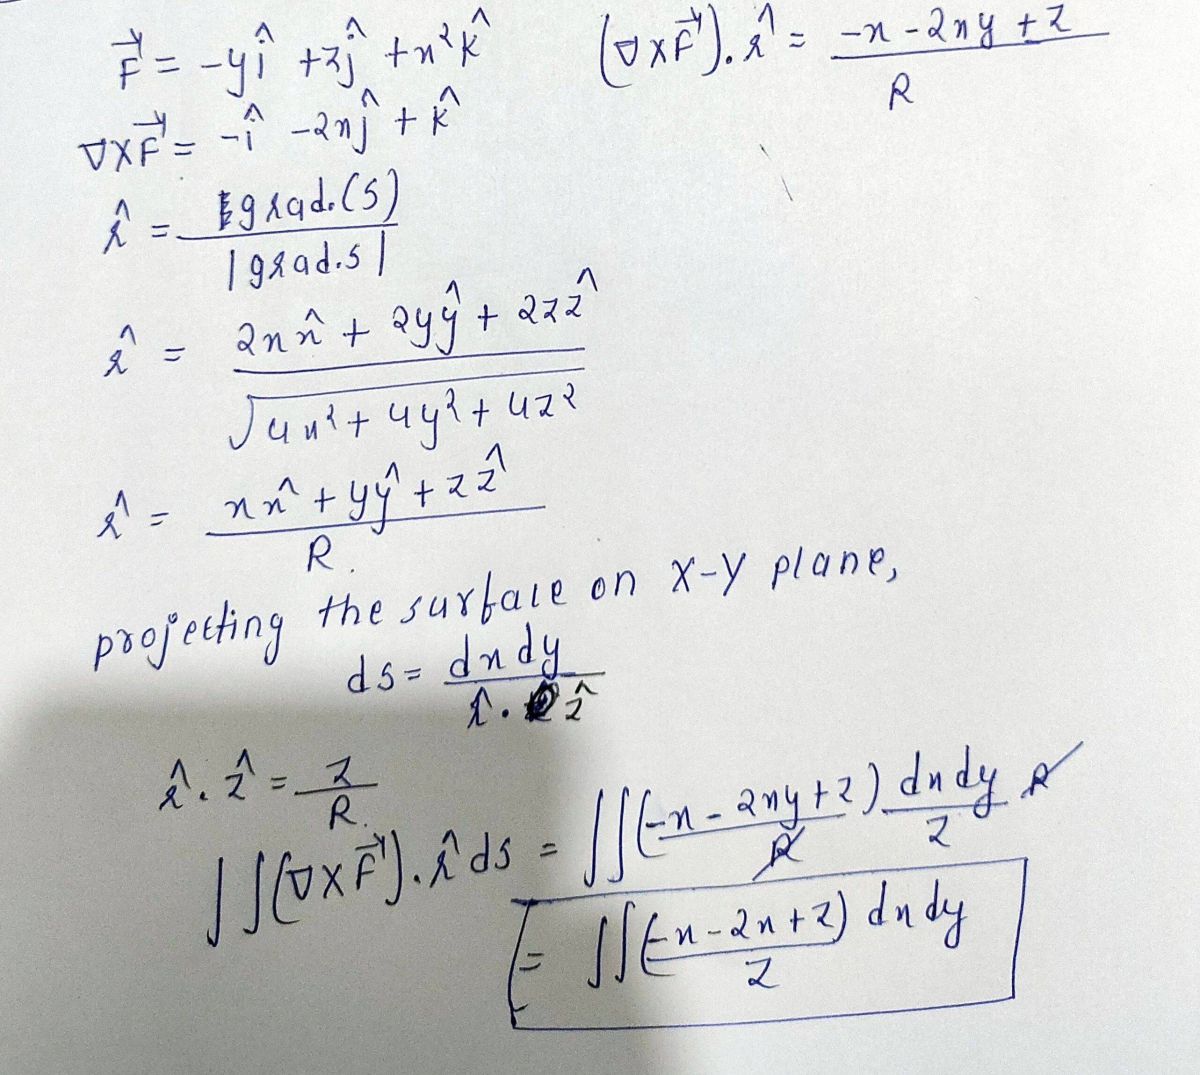 F⃗ = -yî + zĵ + x²k̂
(∇×F⃗).r̂ = (-x - 2xy + z)/R
∇×F⃗ = -î - 2xĵ + k̂
r̂ = grad.(S)/|grad.s|
r̂ = (2xx̂ + 2yŷ + 2zẑ)/√(4x² + 4y² + 4z²)
r̂ = (xx̂ + yŷ + zẑ)/R.
projecting the surface on X-Y plane,
ds = dxdy/(r̂.ẑ)
r̂.ẑ = z/R.
∫∫(∇×F⃗).r̂ ds = ∫∫(-x - 2xy + z)/R dxdy/z R
= ∫∫(-x - 2x + z)/z dxdy